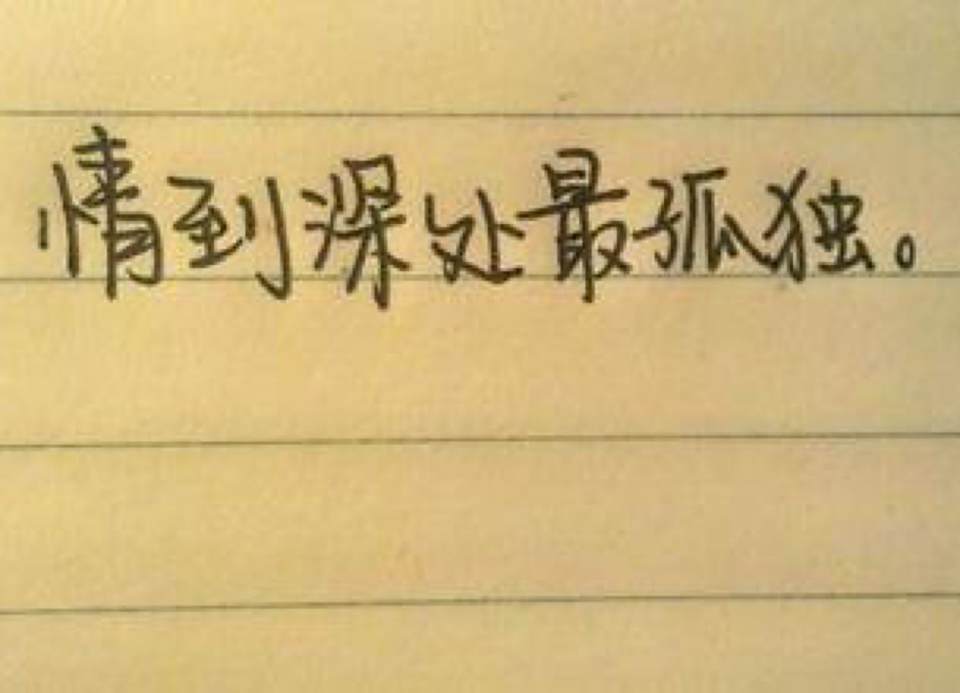 情到深处最孤独。